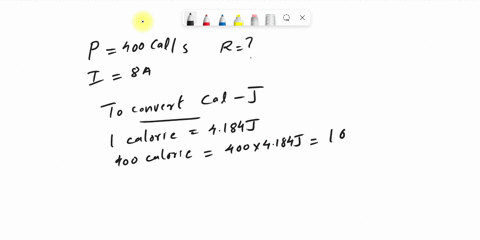 P = 400 Cal/s R = ?
I = 8A
To convert Cal - J
1 calorie = 4.184J
400 calorie = 400 × 4.184J = 16